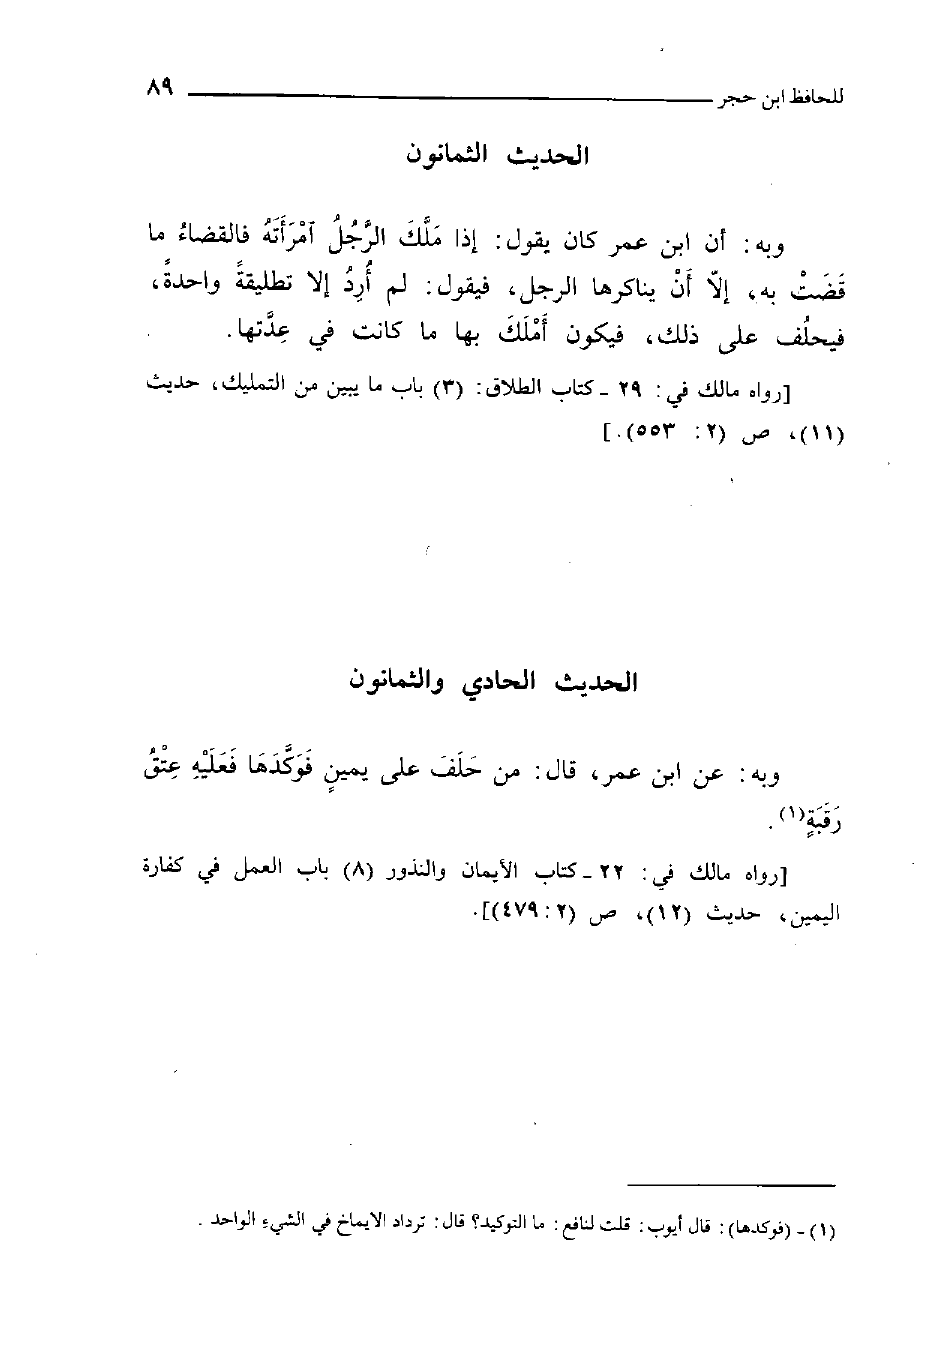 للحافظ ابن حجر ٨٩
الحديث الثمانون
وبه: أن ابن عمر كان يقول: إذا مَلَّكَ الرَّجُلُ آمْرَأَتَهُ فالقضاءُ ما
قَضَتْ به، إلاّ أَنْ يناكرها الرجل، فيقول: لم أُرِدْ إلا تطليقةً واحدةً،
فيحلُف على ذلك، فيكون أَمْلَكَ بها ما كانت في عِدَّتها.
[رواه مالك في: ٢٩ ـ كتاب الطلاق: (٣) باب ما يبين من التمليك، حديث
(١١)، ص (٢: ٥٥٣).]
الحديث الحادي والثمانون
وبه: عن ابن عمر، قال: من حَلَفَ على يمينٍ فَوَكَّدَهَا فَعَلَيْهِ عِتْقُ
رَقَبَةٍ(١).
[رواه مالك في: ٢٢ ـ كتاب الأيمان والنذور (٨) باب العمل في كفارة
اليمين، حديث (١٢)، ص (٢: ٤٧٩)].
(١) - (فوكدها): قال أيوب: قلت لنافع: ما التوكيد؟ قال: ترداد الايماخ في الشيء الواحد.